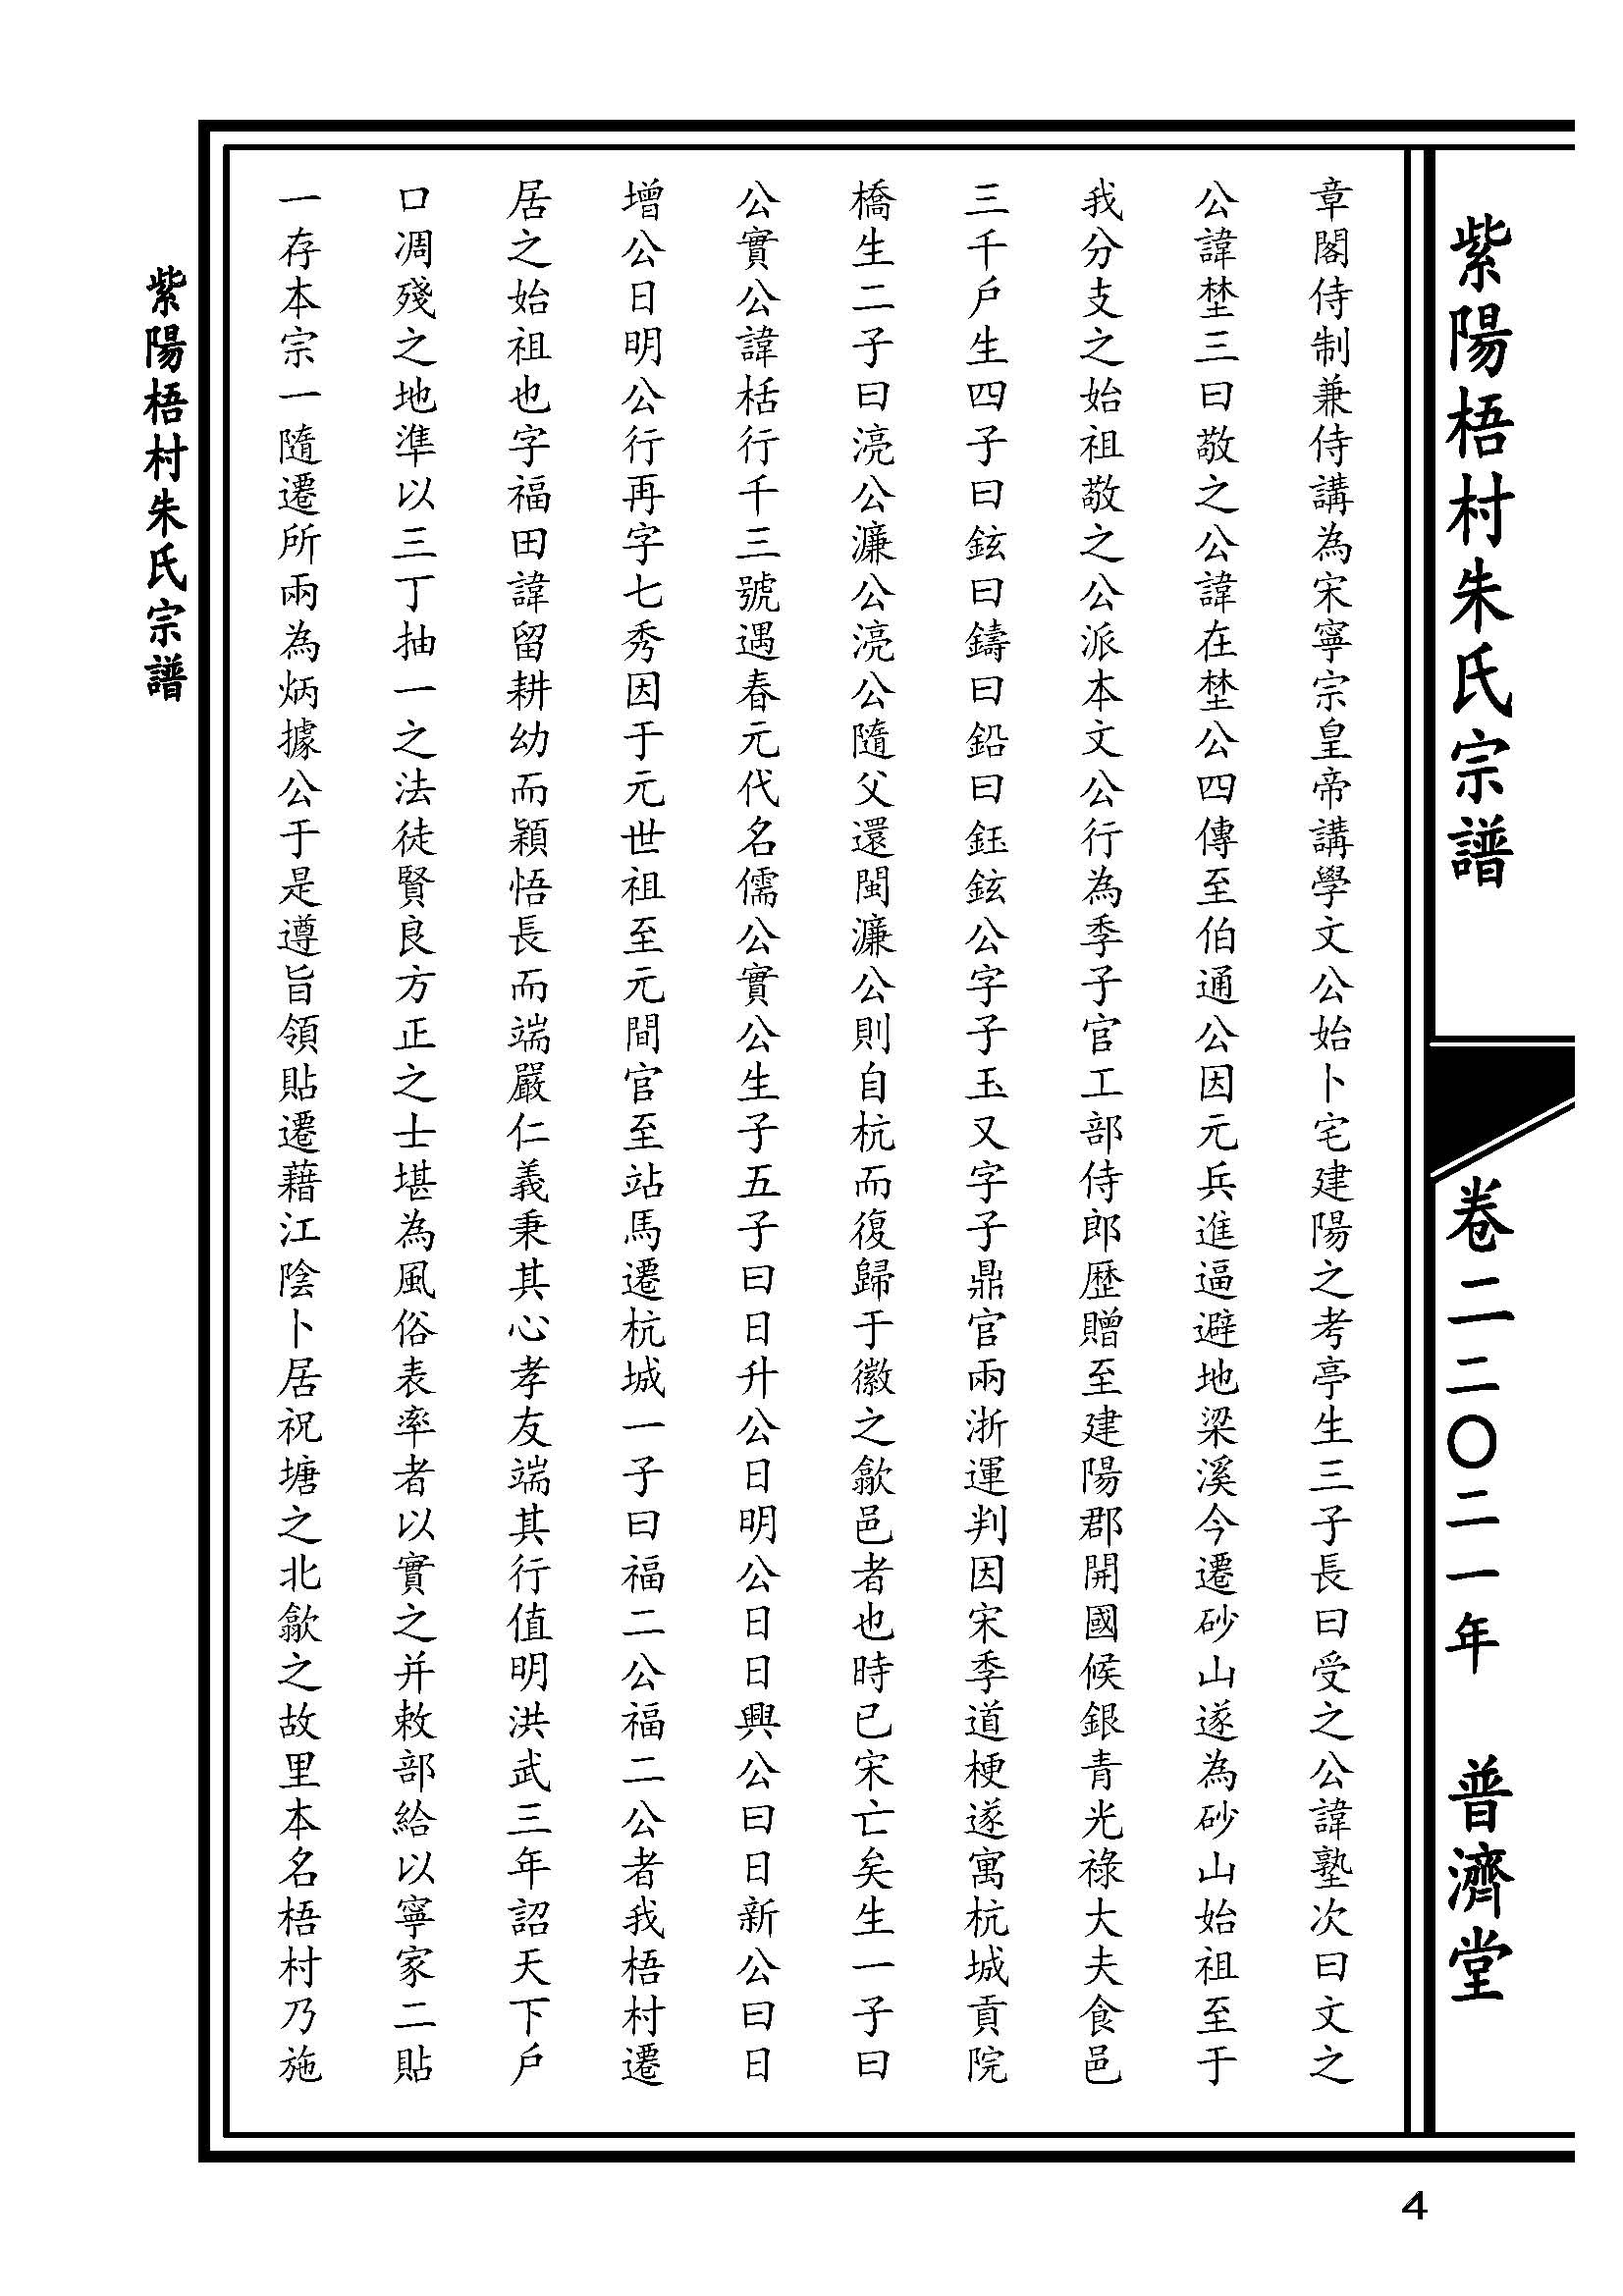 紫陽梧村朱氏宗譜
卷二 二〇二一年 普濟堂
章閣侍制兼侍講為宋寧宗皇帝講學文公始卜宅建陽之考亭生三子長曰受之公諱塾次曰文之
公諱埜三曰敬之公諱在埜公四傳至伯通公因元兵進逼避地梁溪今遷砂山遂為砂山始祖至于
我分支之始祖敬之公派本文公行為季子官工部侍郎歷贈至建陽郡開國候銀青光祿大夫食邑
三千戶生四子曰鉉曰鑄曰鉛曰鈺鉉公字子玉又字子鼎官兩浙運判因宋季道梗遂寓杭城貢院
橋生二子曰湸公濂公湸公隨父還閩濂公則自杭而復歸于徽之歙邑者也時已宋亡矣生一子曰
公實公諱栝行千三號遇春元代名儒公實公生子五子曰日升公日明公日日興公曰日新公曰日
增公日明公行再字七秀因于元世祖至元間官至站馬遷杭城一子曰福二公福二公者我梧村遷
居之始祖也字福田諱留耕幼而穎悟長而端嚴仁義秉其心孝友端其行值明洪武三年詔天下戶
口凋殘之地準以三丁抽一之法徒賢良方正之士堪為風俗表率者以實之并敕部給以寧家二貼
一存本宗一隨遷所兩為炳據公于是遵旨領貼遷藉江陰卜居祝塘之北歙之故里本名梧村乃施
紫陽梧村朱氏宗譜
4